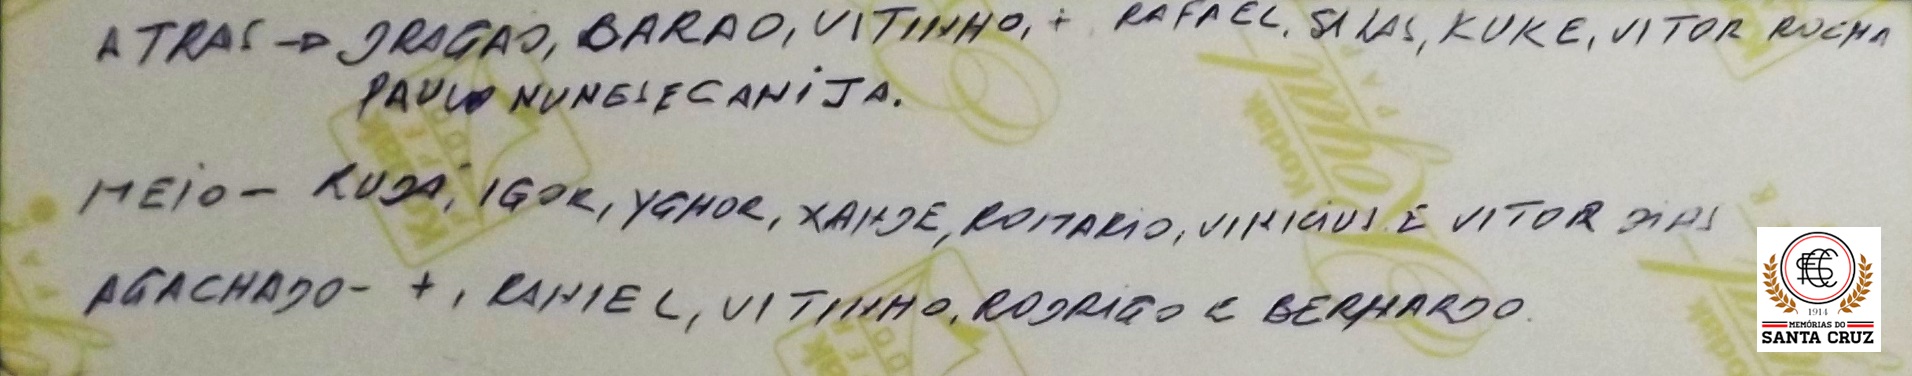 ATRAS → DRAGAO, BARAO, VITINHO, + RAFAEL, SILAS, KUKE, VITOR ROCHA
PAULO NUNES E CANIJA.
MEIO - RUDÁ, IGOR, YGHOR, XANDE, ROMARIO, VINICIUS E VITOR DIAS
AGACHADO - +, RANIEL, VITINHO, RODRIGO E BERNARDO.
Kodak
Kodak
1914
MEMÓRIAS DO
SANTA CRUZ